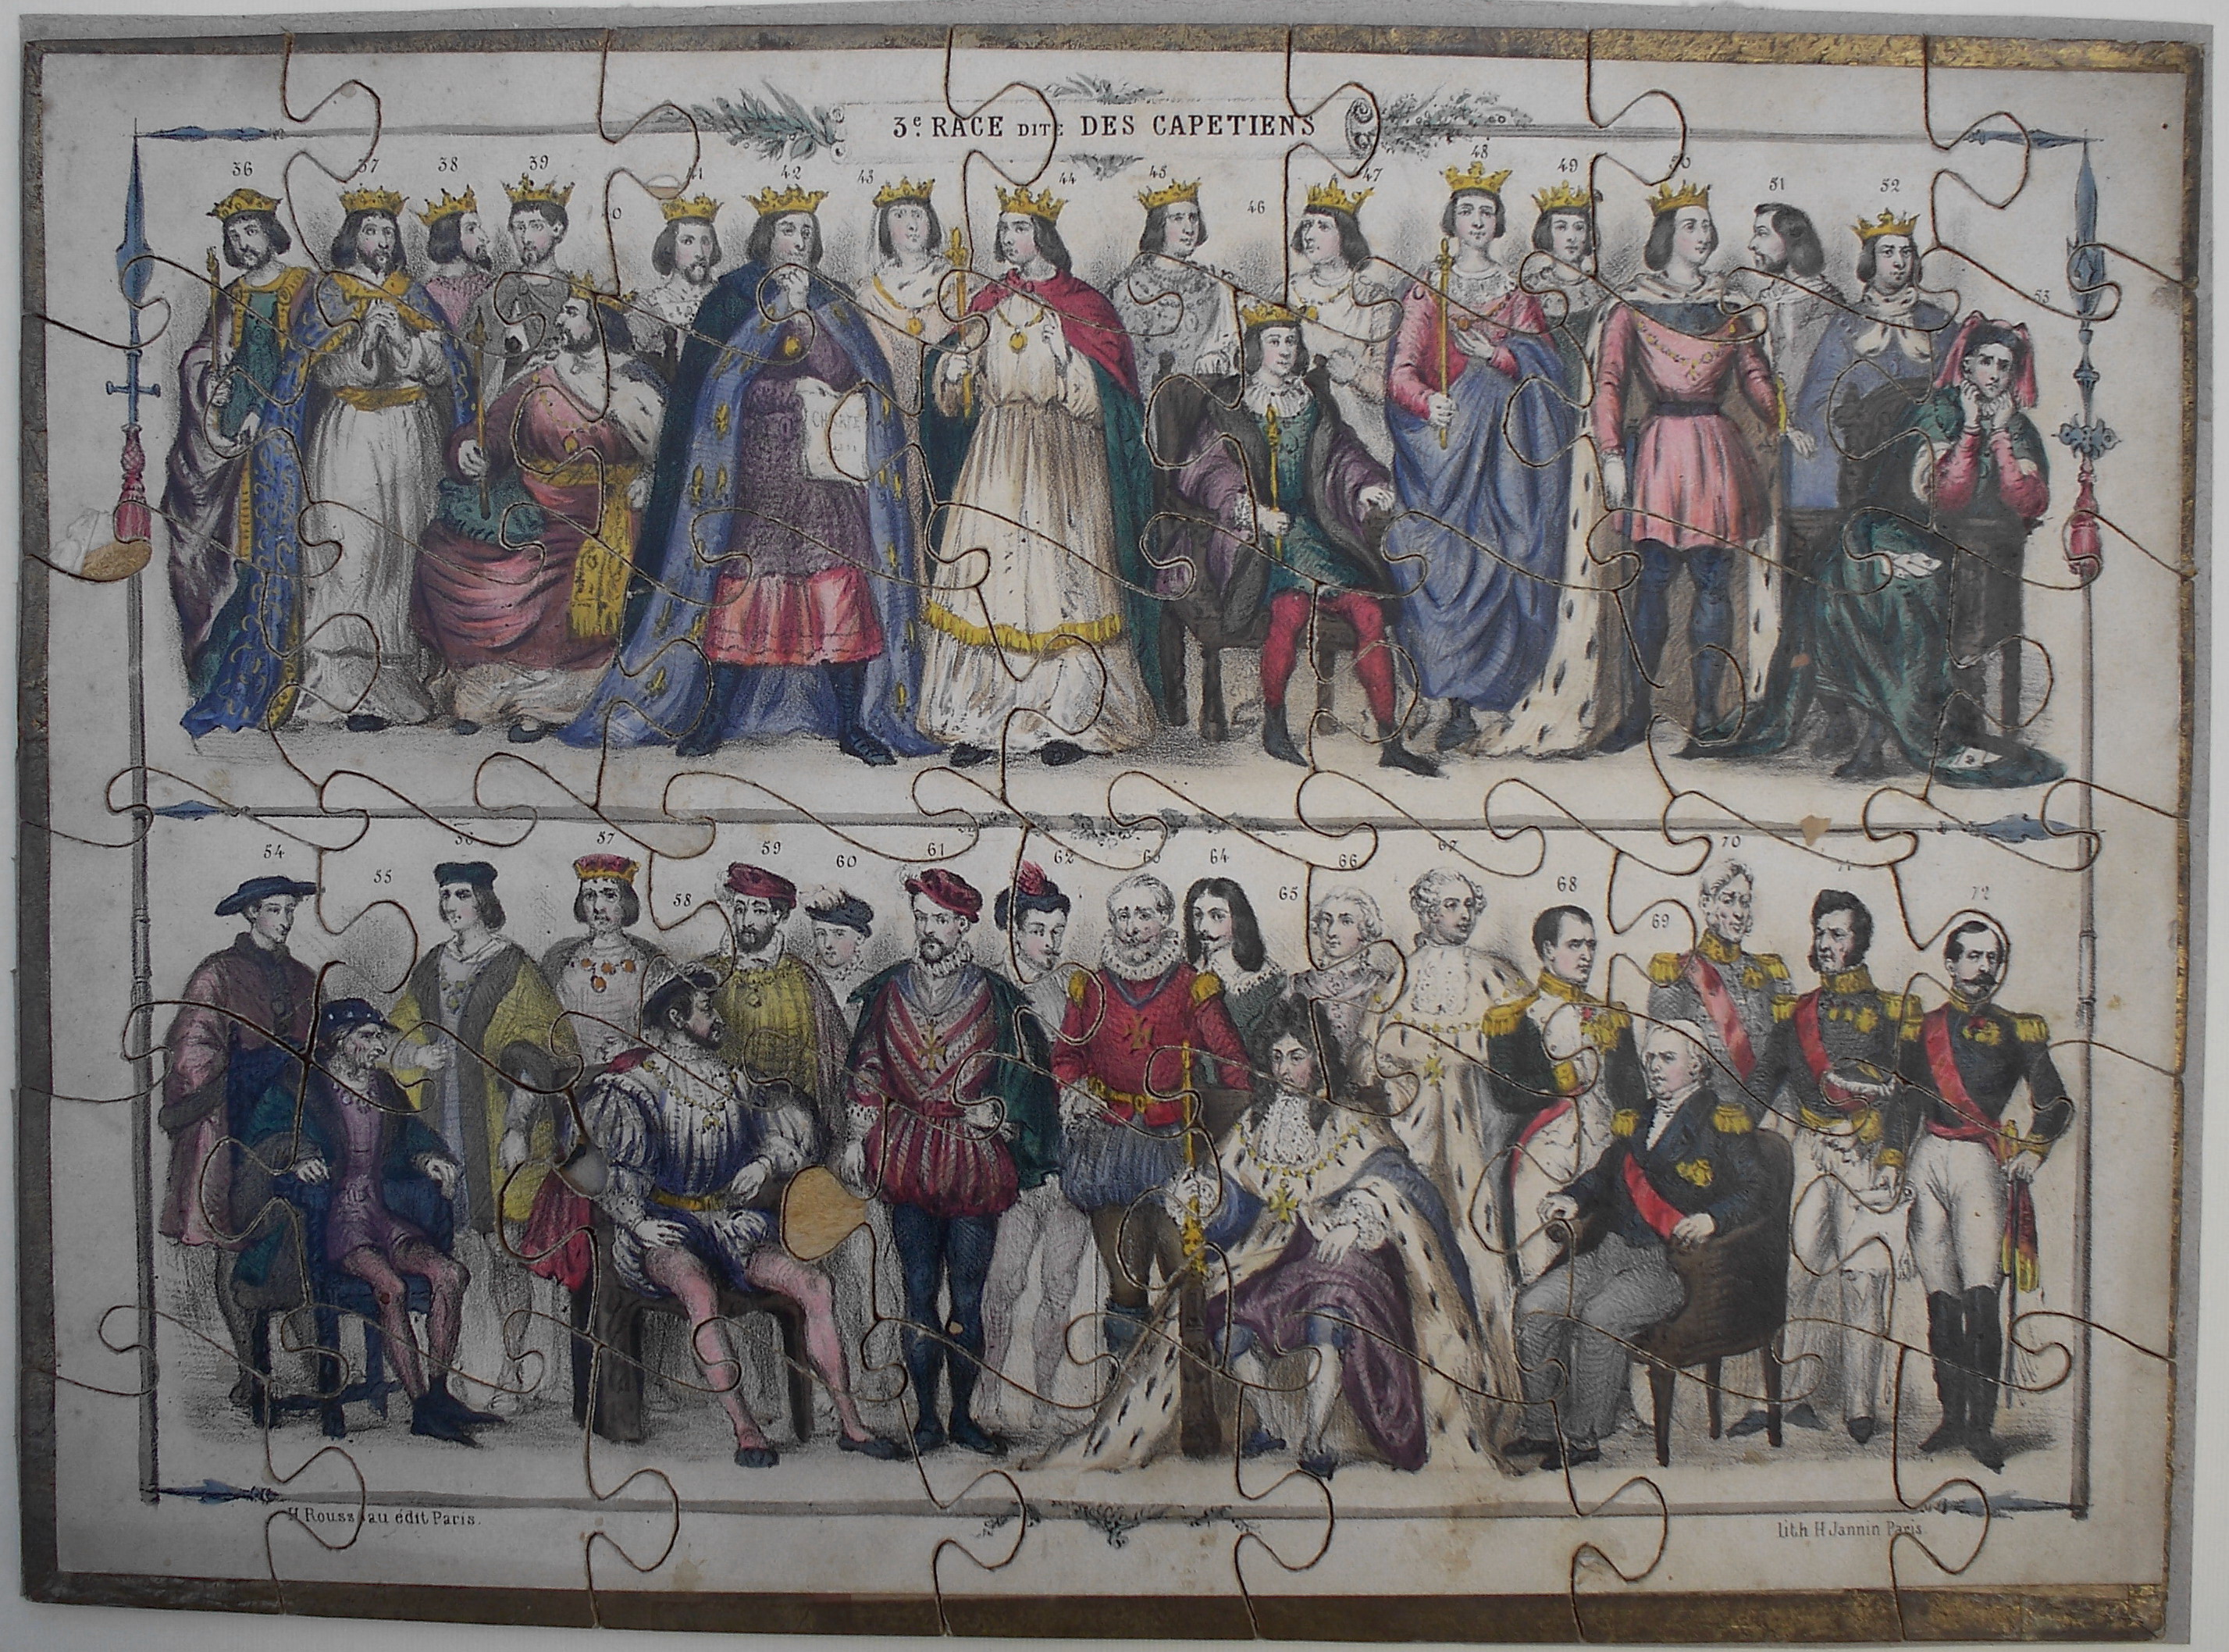 3e. RACE DITE DES CAPETIENS
36 37 38 39 40 41 42 43 44 45 46 47 48 49 50 51 52 53
CHARTE
54 55 56 57 58 59 60 61 62 63 64 65 66 67 68 69 70 71 72
H. Rousseau édit Paris.
Lith H Jannin Paris